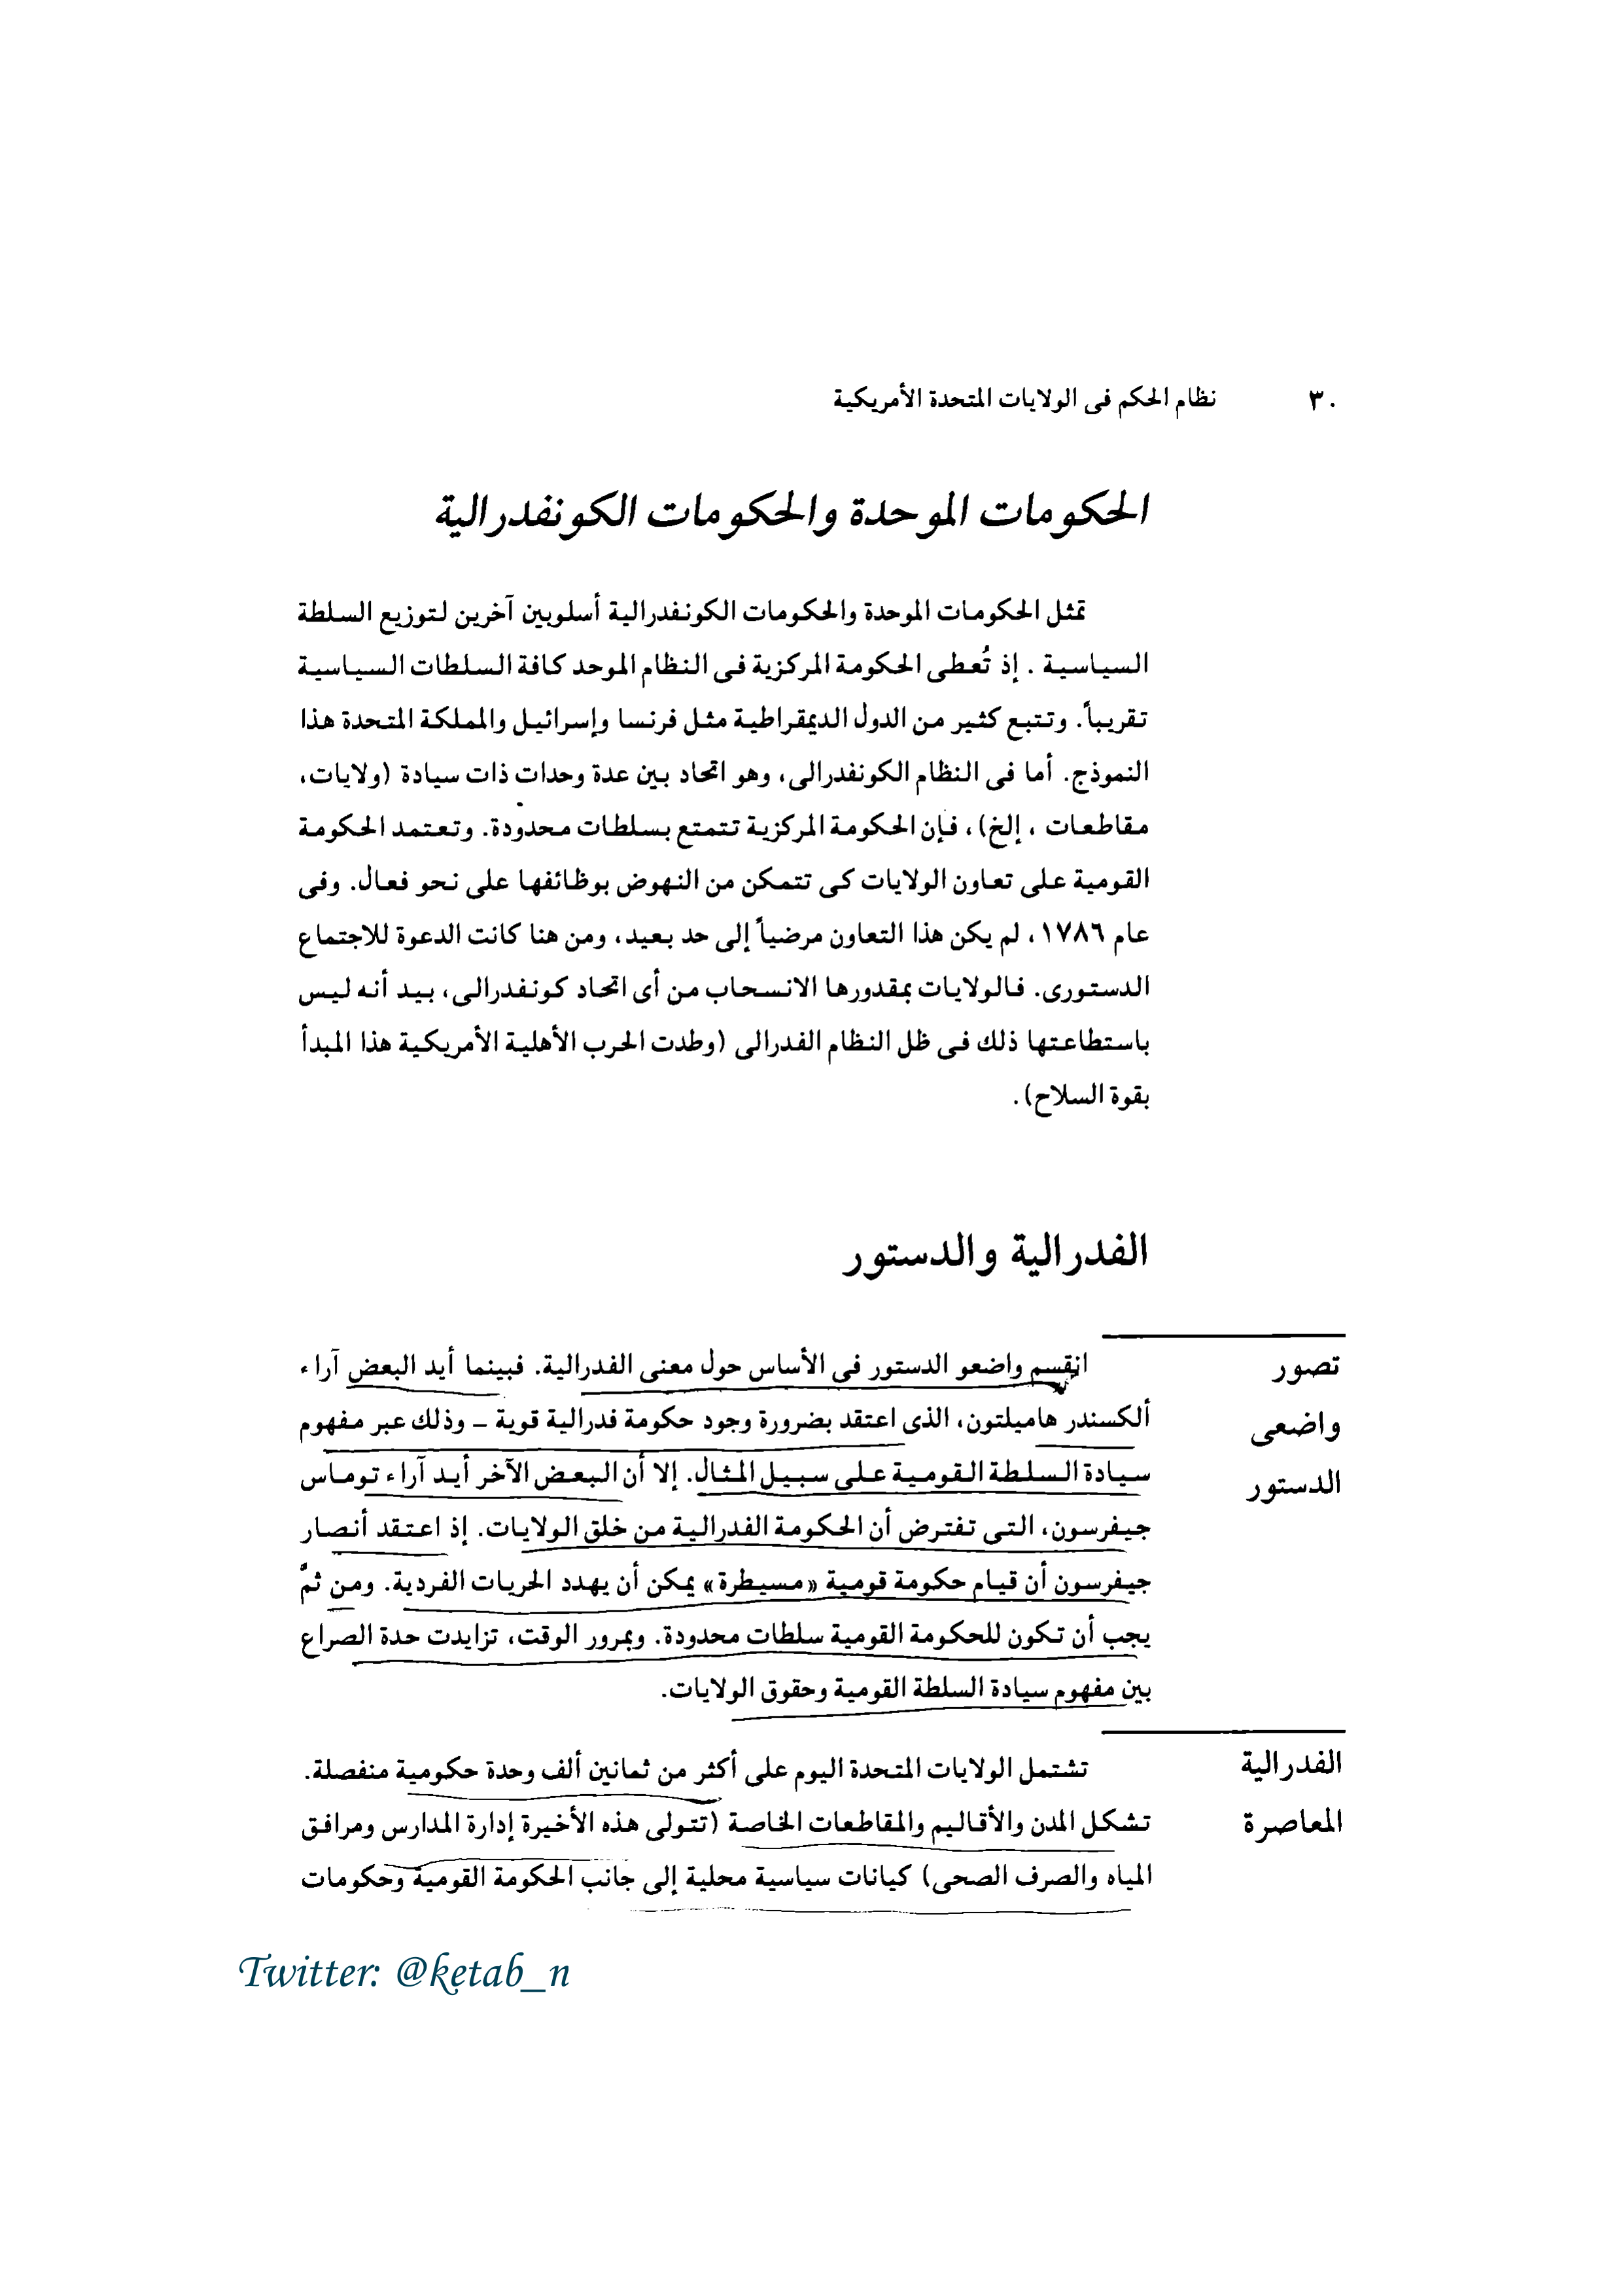 ٣٠ نظام الحكم فى الولايات المتحدة الأمريكية
الحكومات الموحدة والحكومات الكونفدرالية
تمثل الحكومات الموحدة والحكومات الكونفدرالية أسلوبين آخرين لتوزيع السلطة
السياسية . إذ تُعطى الحكومة المركزية فى النظام الموحد كافة السلطات السياسية
تقريباً. وتتبع كثير من الدول الديمقراطية مثل فرنسا وإسرائيل والمملكة المتحدة هذا
النموذج. أما فى النظام الكونفدرالى، وهو اتحاد بين عدة وحدات ذات سيادة (ولايات،
مقاطعات ، إلخ) ، فإن الحكومة المركزية تتمتع بسلطات محدودة. وتعتمد الحكومة
القومية على تعاون الولايات كى تتمكن من النهوض بوظائفها على نحو فعال. وفى
عام ١٧٨٦، لم يكن هذا التعاون مرضياً إلى حد بعيد، ومن هنا كانت الدعوة للاجتماع
الدستورى. فالولايات بمقدورها الانسحاب من أى اتحاد كونفدرالى، بيد أنه ليس
باستطاعتها ذلك فى ظل النظام الفدرالى (وطدت الحرب الأهلية الأمريكية هذا المبدأ
بقوة السلاح) .
الفدرالية والدستور
تصور
واضعى
الدستور
انقسم واضعو الدستور فى الأساس حول معنى الفدرالية. فبينما أيد البعض آراء
ألكسندر هاميلتون، الذى اعتقد بضرورة وجود حكومة فدرالية قوية – وذلك عبر مفهوم
سيادة السلطة القومية على سبيل المثال. إلا أن البعض الآخر أيد آراء توماس
جيفرسون، التى تفترض أن الحكومة الفدرالية من خلق الولايات. إذ اعتقد أنصار
جيفرسون أن قيام حكومة قومية «مسيطرة» يمكن أن يهدد الحريات الفردية. ومن ثمّ
يجب أن تكون للحكومة القومية سلطات محدودة. وبمرور الوقت، تزايدت حدة الصراع
بين مفهوم سيادة السلطة القومية وحقوق الولايات.
الفدرالية
المعاصرة
تشتمل الولايات المتحدة اليوم على أكثر من ثمانين ألف وحدة حكومية منفصلة.
تشكل المدن والأقاليم والمقاطعات الخاصة (تتولى هذه الأخيرة إدارة المدارس ومرافق
المياه والصرف الصحى) كيانات سياسية محلية إلى جانب الحكومة القومية وحكومات
Twitter: @ketab_n